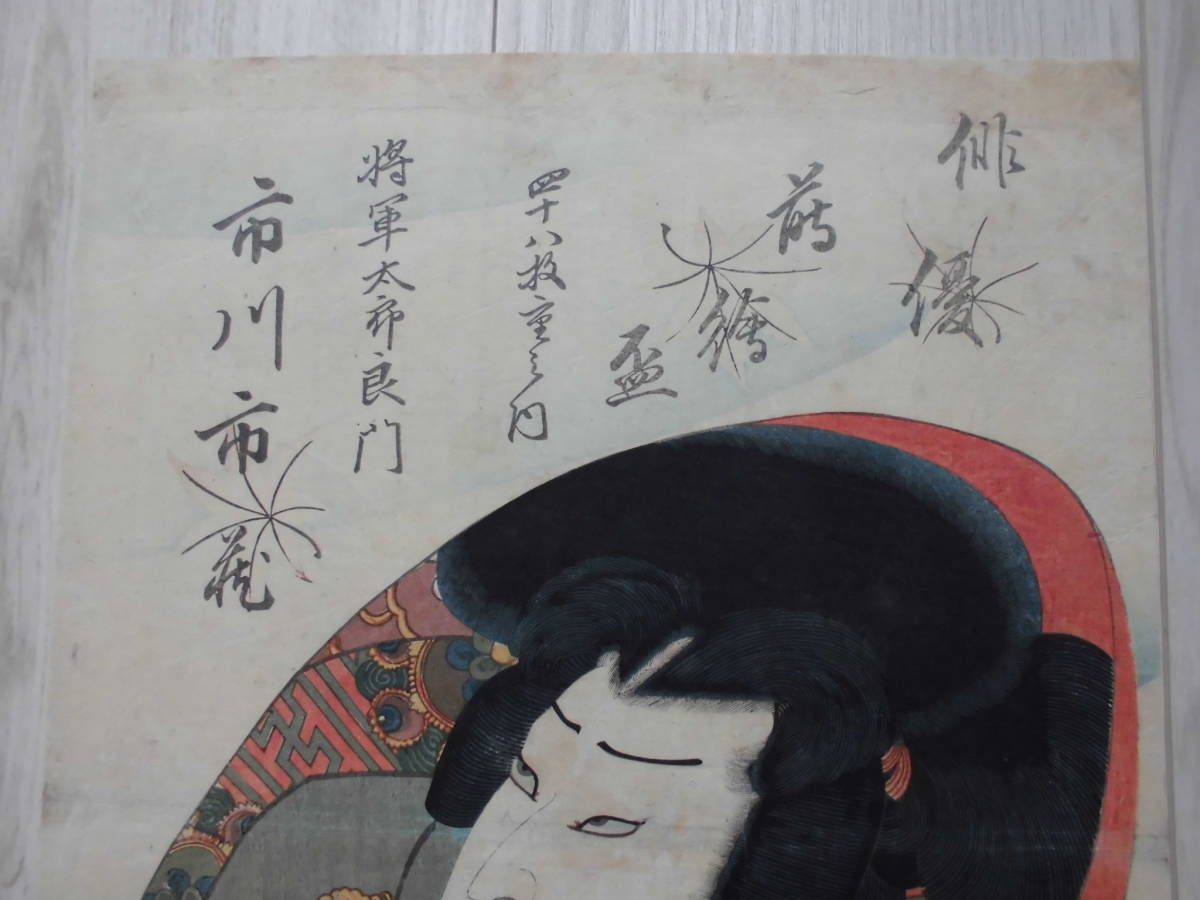 俳優
蒔繪盃
四十八枚重之内
将軍太郎良門
市川市蔵